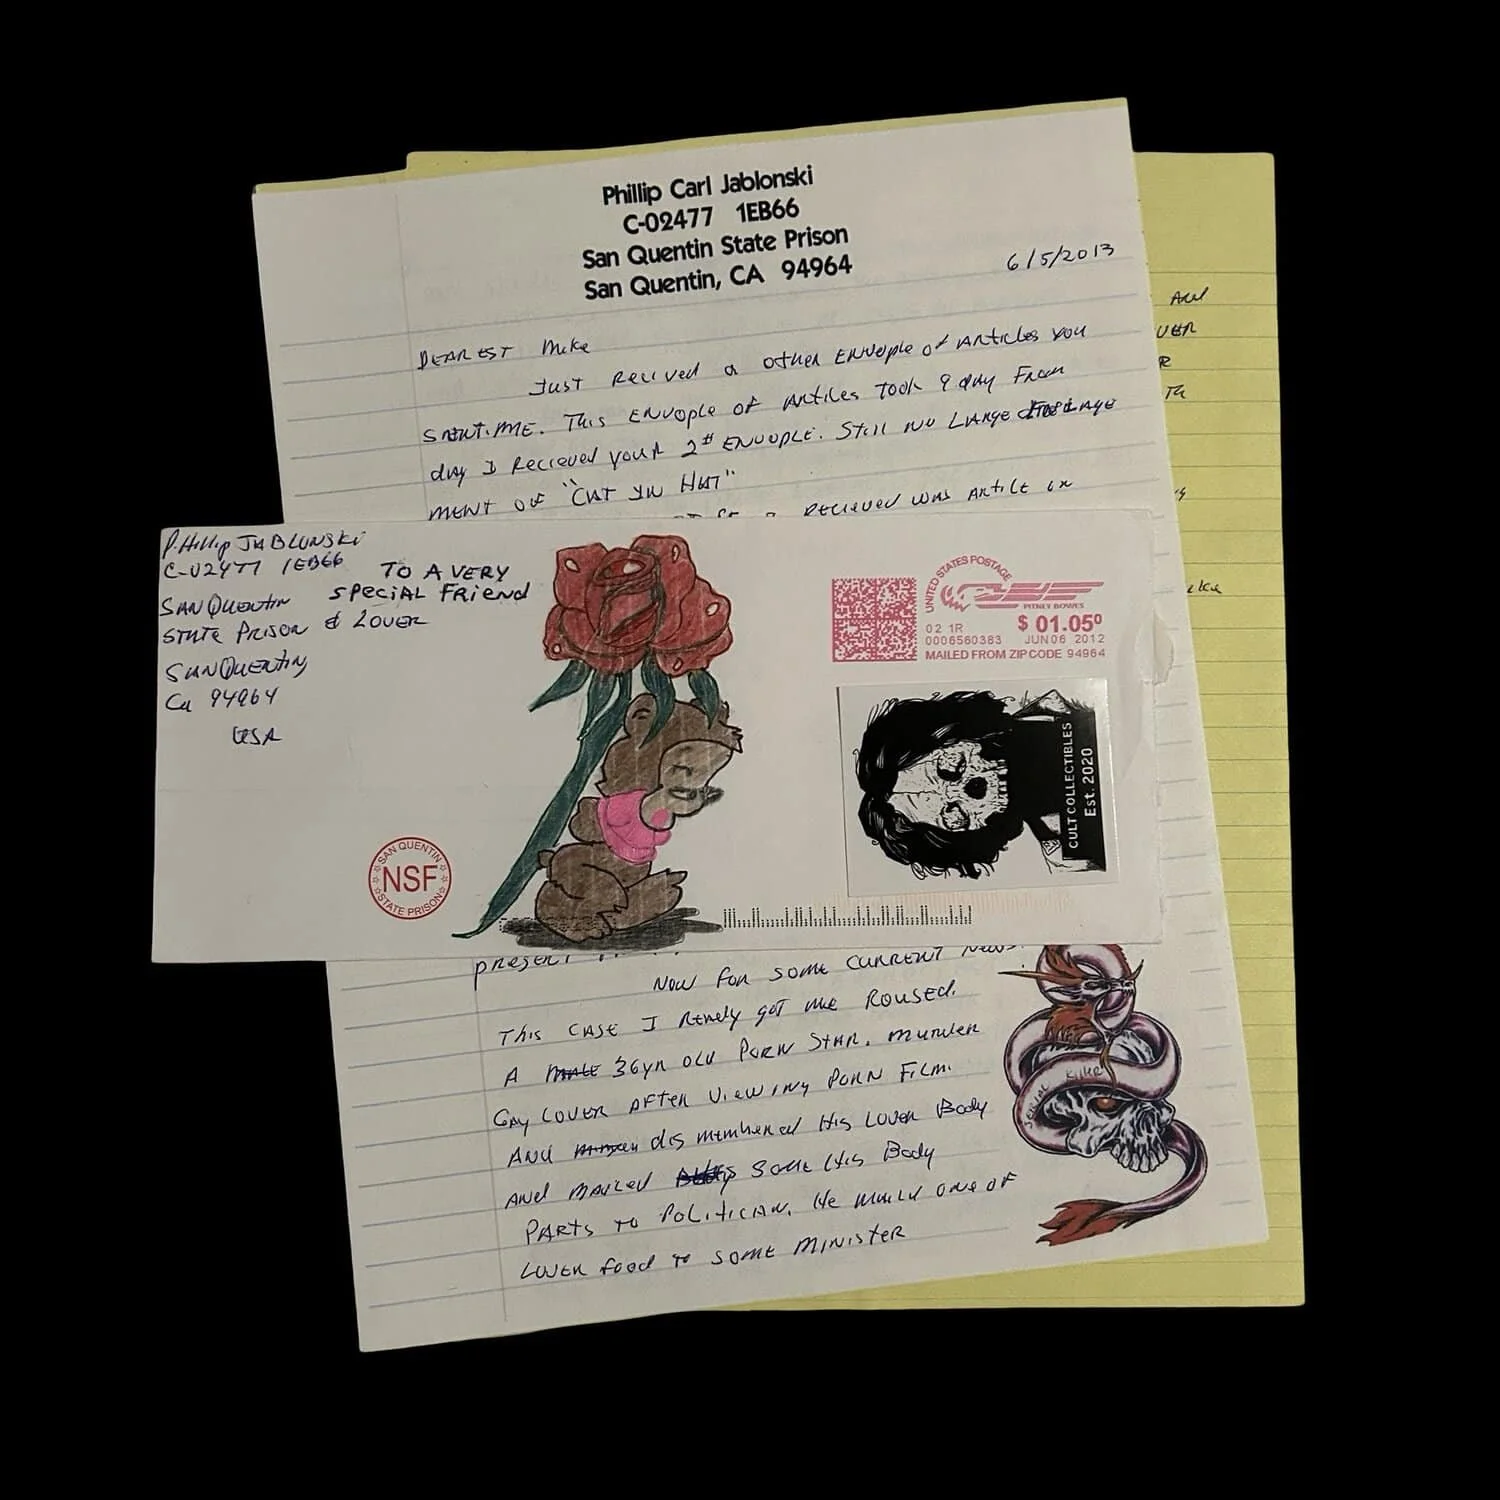 Phillip Carl Jablonski
C-02477 1EB66
San Quentin State Prison
San Quentin, CA 94964
6/5/2013
DEAREST Mike
JUST Recived a other Envople of Articles you
SENT.ME. This ENVOPLE OF Articles Took 9 day From
day I Recieved your 2# ENVOPLE. Still no LARGE
MENT OF "CAT IN HAT"
Recieved was Article on
P.Hillip JABLONSKi
C-02477 1EB66
SAN QUENTIN
STATE PRISON
SAN QUENTIN
Ca 94964
USA
TO A VERY
SPECiAL FRiend
& LOVER
UNITED STATES POSTAGE
PITNEY BOWES
02 1R
$ 01.05⁰
0006560383 JUN 06 2012
MAILED FROM ZIP CODE 94964
CULT COLLECTIBLES
Est. 2020
SAN QUENTIN
NSF
STATE PRISON
present
NOW FOR SOME CURRENT News.
This CASE I Rewely got me ROUSED.
A 36yr OLd PORN STAR. MURdER
GAY LOVER AFTER Viewing PORN FiLM.
ANd dis membered His LOVER Body
ANd MAiLEd Some His Body
PARTS TO POLiticiAN. He MAiLd one of
LOVER Food To SOME MINISTER
SERIAL KILLER
ANd